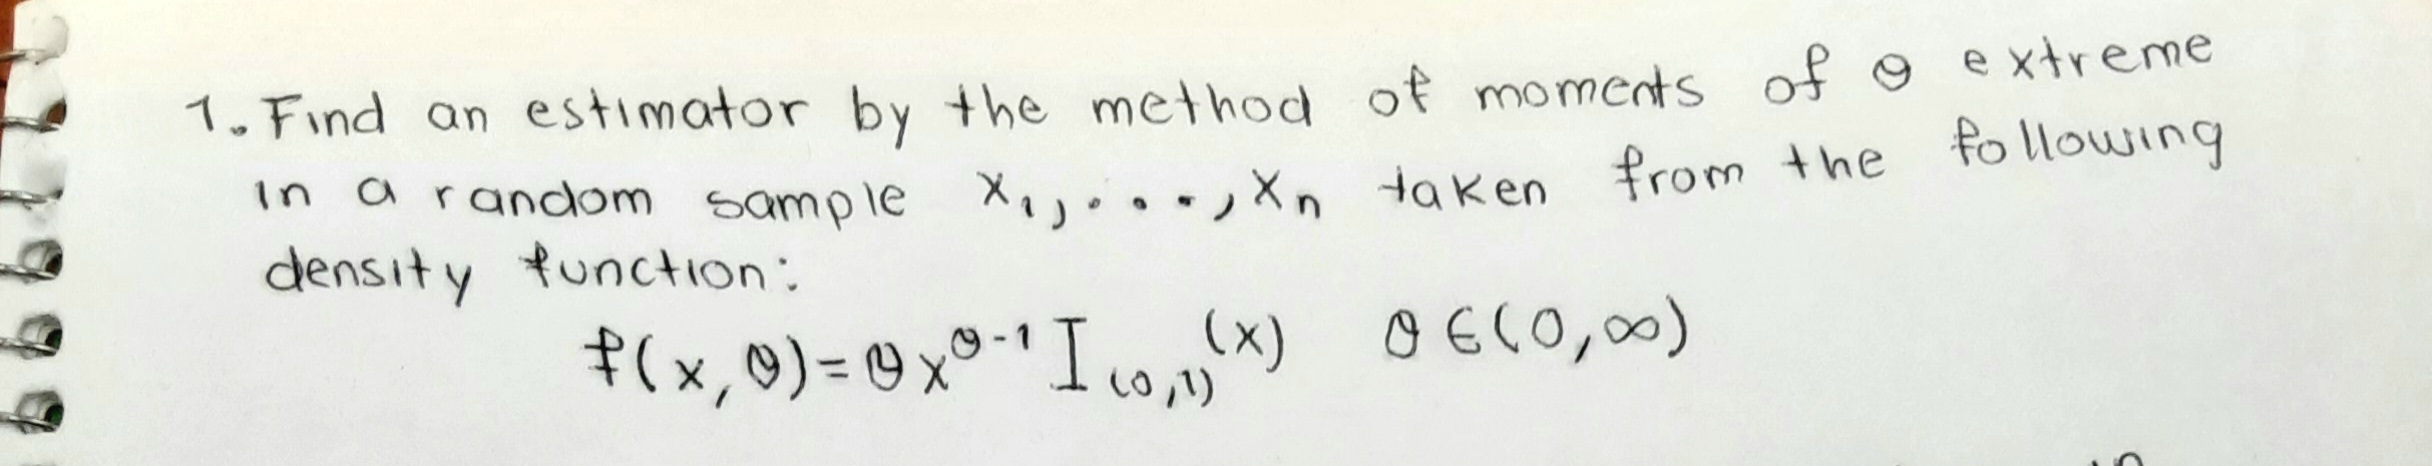 1. Find an estimator by the method of moments of θ extreme
in a random sample X₁,...,Xn taken from the following
density function:
f(x,θ)=θx^θ-1 I(0,1)(x) θ∈(0,∞)